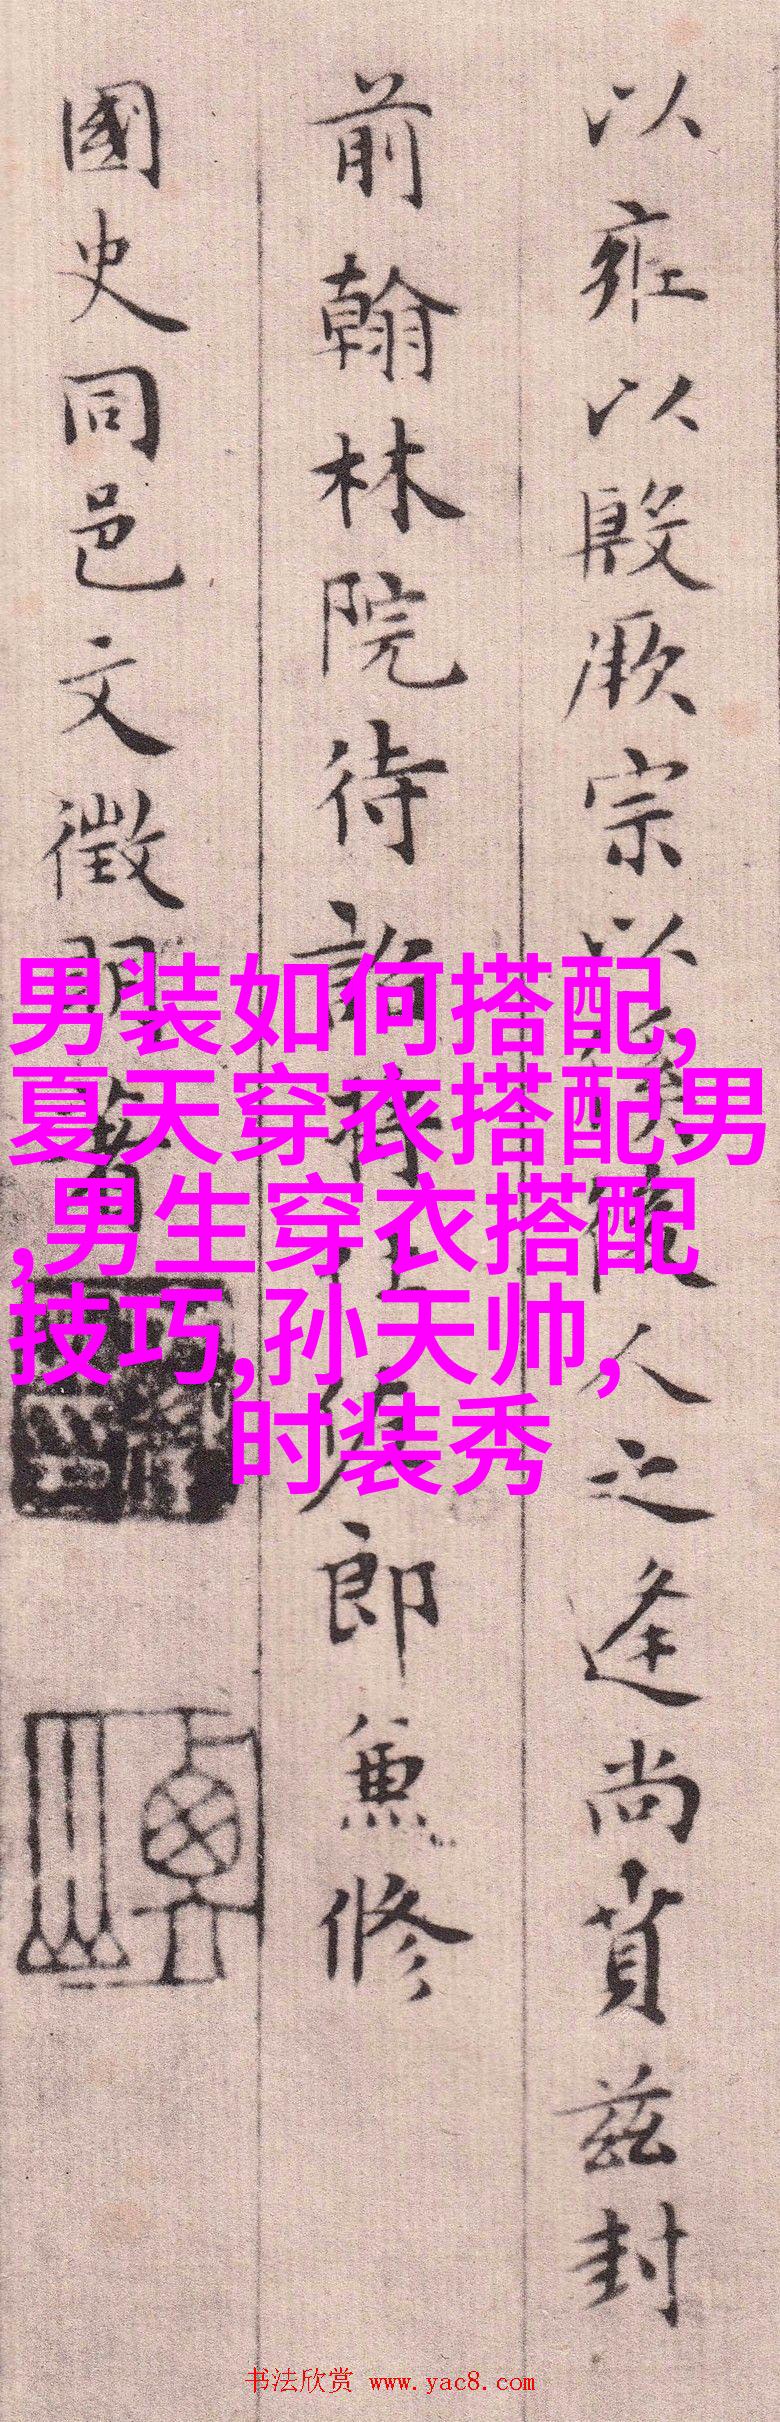 以雍以殷厥宗以後人之逢尚賁茲封
前翰林院待詔將仕佐郎兼修
國史同邑文徵明
男装如何搭配,
夏天穿衣搭配男
,男生穿衣搭配
技巧,孙天帅,
时装秀
书法欣赏 www.yac8.com